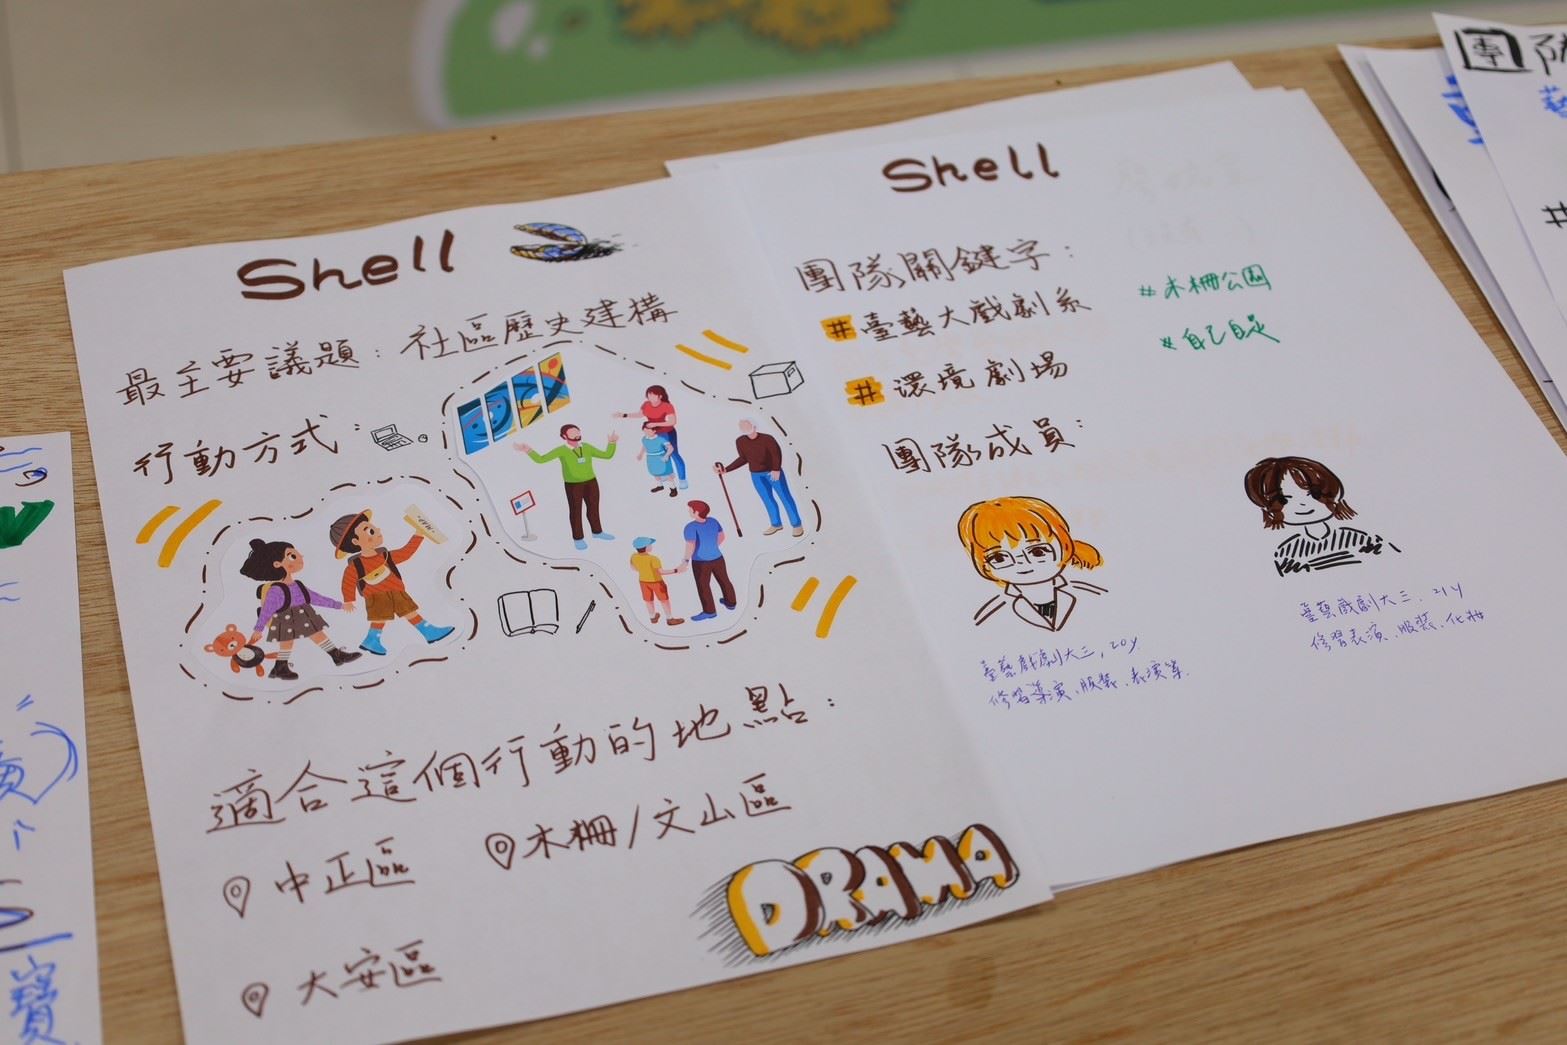 Shell
最主要議題：社區歷史建構
行動方式：
MAP
適合這個行動的地點：
中正區
木柵/文山區
大安區
DRAMA
Shell
團隊關鍵字：
#臺藝大戲劇系
#環境劇場
#木柵公園
團隊成員：
臺藝戲劇大三, 20y
修習導演、服裝、表演等.
臺藝戲劇大三, 21y
修習表演、服裝、化妝
團隊
#
寶